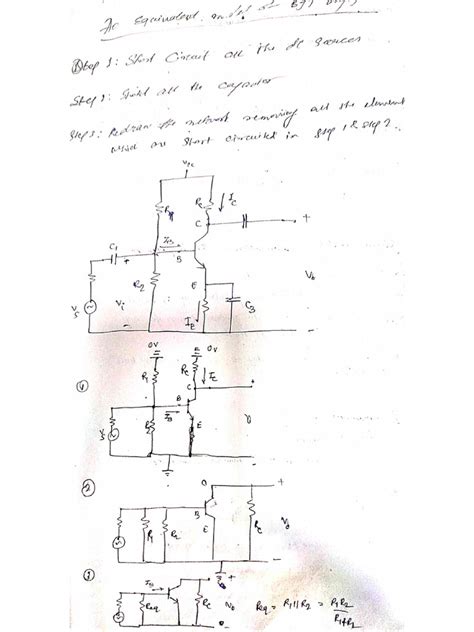 Ac equivalent model of BJT
Step 1: Short Circuit all the dc sources
Step 2: Short all the capacitor
Step 3: Redraw the network removing all the element
which are short circuited in step 1 & step 2.
Vcc
Rc
Ic
C
+
C1
+
IB
B
R2
E
Vo
Vs
Vi
IE
C3
-
-
0V
0V
R1
Rc
C
B
IB
E
Vs
+
B
R1
R2
E
Rc
Vo
-
IB
+
Req
Rc
Vo
-
Req = R1 || R2 = R1R2
R1+R2